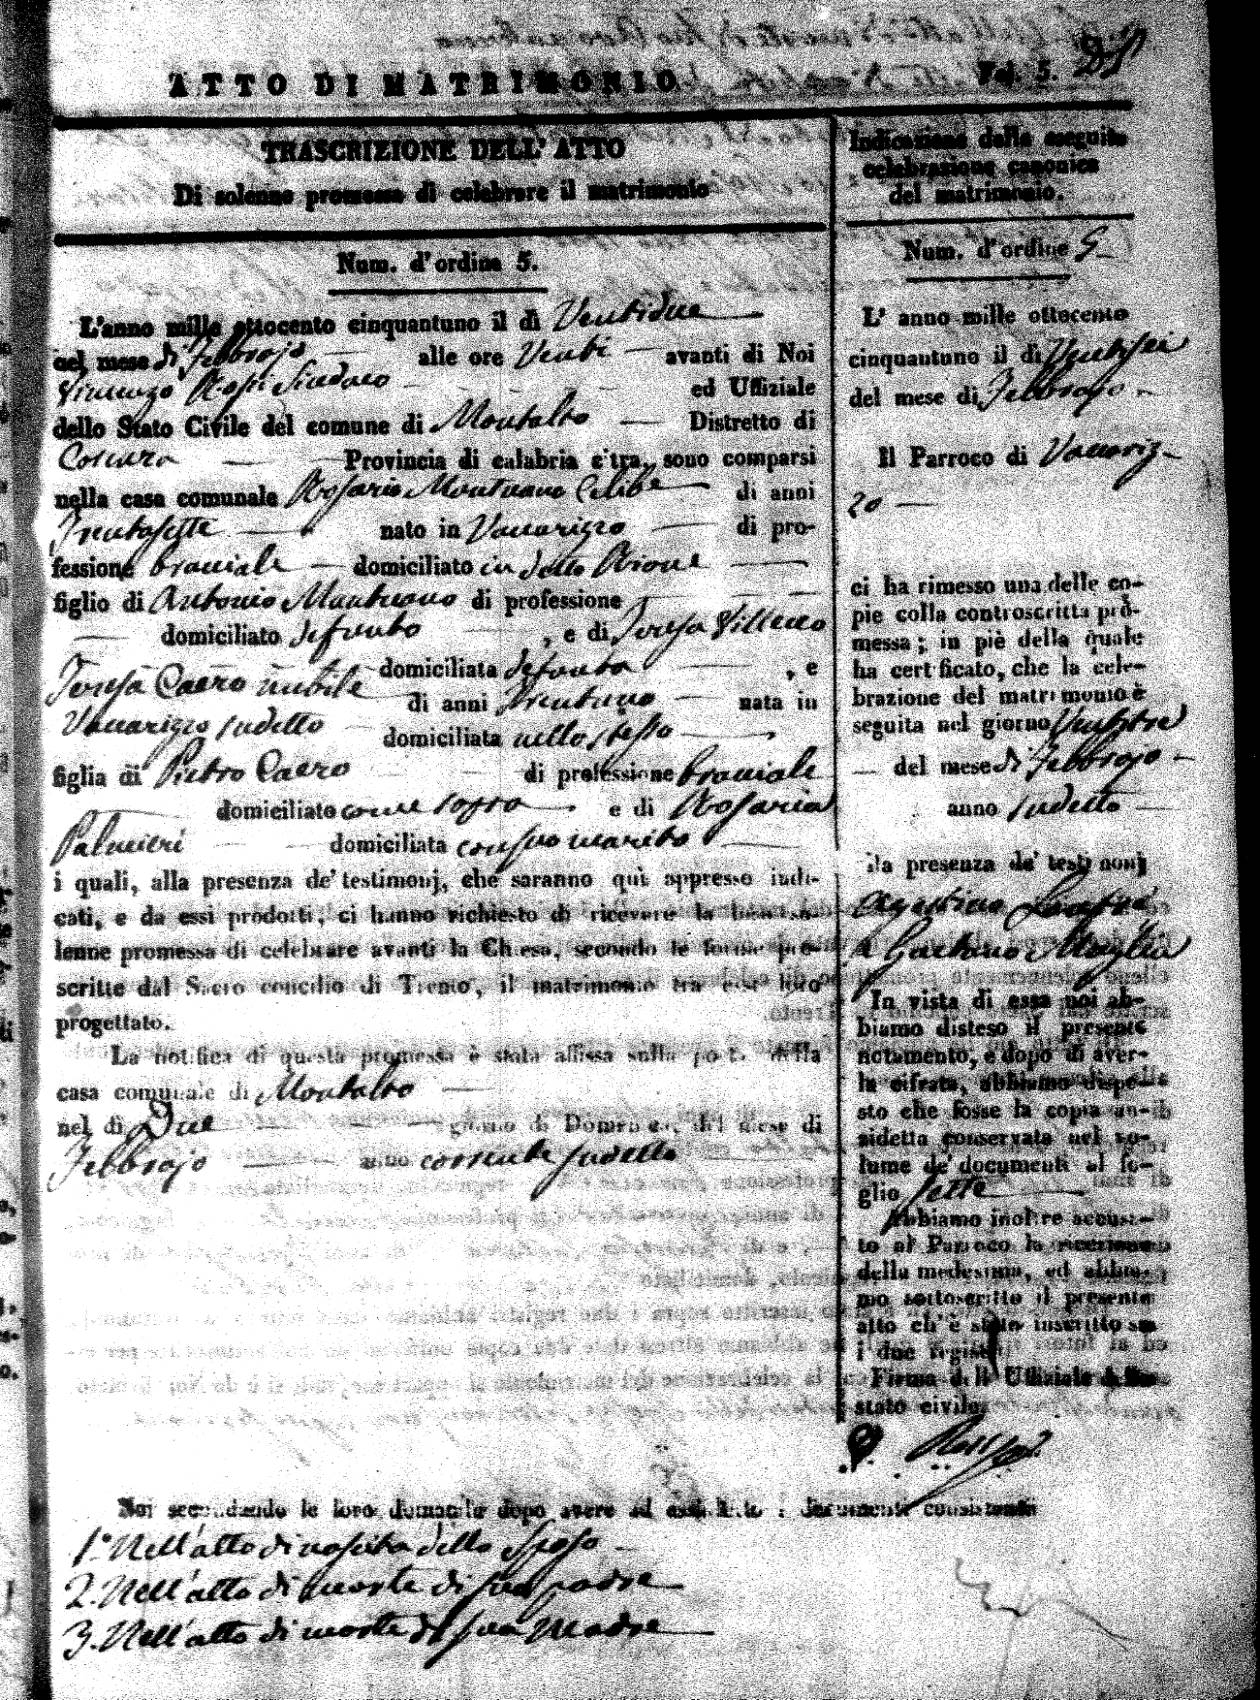 ATTO DI MATRIMONIO
Fol. 5.
TRASCRIZIONE DELL' ATTO
Di solenne promessa di celebrare il matrimonio
Num. d'ordine 5.
L'anno mille ottocento cinquantuno il dì Ventidue
nel mese di Febbrajo alle ore Venti avanti di Noi
Vincenzo Rossi Sindaco ed Uffiziale
dello Stato Civile del comune di Montalto Distretto di
Cosenza Provincia di calabria citra, sono comparsi
nella casa comunale Rosario Montuano Celibe di anni
Trentasette nato in Vaccarizzo di pro-
fessione bracciale domiciliato in detto Rione
figlio di Antonio Mantuano di professione
domiciliato defunto , e di Teresa
domiciliata defunta , e
Teresa Caero nubile di anni Trentuno nata in
Vaccarizzo sudetto domiciliata nello stesso
figlia di Pietro Caero di professione bracciale
domiciliato come sopra e di Rosaria
Palmieri domiciliata con suo marito
i quali, alla presenza de' testimonj, che saranno quì appresso indi-
cati, e da essi prodotti, ci hanno richiesto di ricevere la loro so-
lenne promessa di celebrare avanti la Chiesa, secondo le forme pre-
scritte dal Sacro concilio di Trento, il matrimonio tra essi loro
progettato.
La notifica di questa promessa è stata affissa sulla porta della
casa comunale di Montalto
nel dì Due giorno di Domenica, del mese di
Febbrajo anno corrente sudetto
Noi secondando le loro domande dopo avere ad essi letto i documenti consistenti
1.° Nell'atto di nascita dello Sposo
2. Nell'atto di morte di suo padre
3. Nell'atto di morte di sua Madre
Indicazione della seguita
celebrazione canonica
del matrimonio.
Num. d'ordine 5
L' anno mille ottocento
cinquantuno il dì Ventisei
del mese di Febbrajo
Il Parroco di Vaccariz-
zo
ci ha rimesso una delle co-
pie colla controscritta prò-
messa; in piè della quale
ha certificato, che la cele-
brazione del matrimonio è
seguita nel giorno Ventitre
del mese di Febbrajo
anno sudetto
alla presenza de' testimonj
Agostino
e Gaetano Moglia
In vista di essa noi ab-
biamo disteso il presente
notamento, e dopo di aver-
la cifrata, abbiamo dispo-
sto che fosse la copia an-
zidetta conservata nel vo-
lume de' documenti al fo-
glio sette
Abbiamo inoltre accusa-
to al Parroco la ricezione
della medesima, ed abbia-
mo sottoscritto il presente
atto ch'è stato inscritto su
i due registri
Firma dell' Uffiziale dello
stato civile.
Rossi